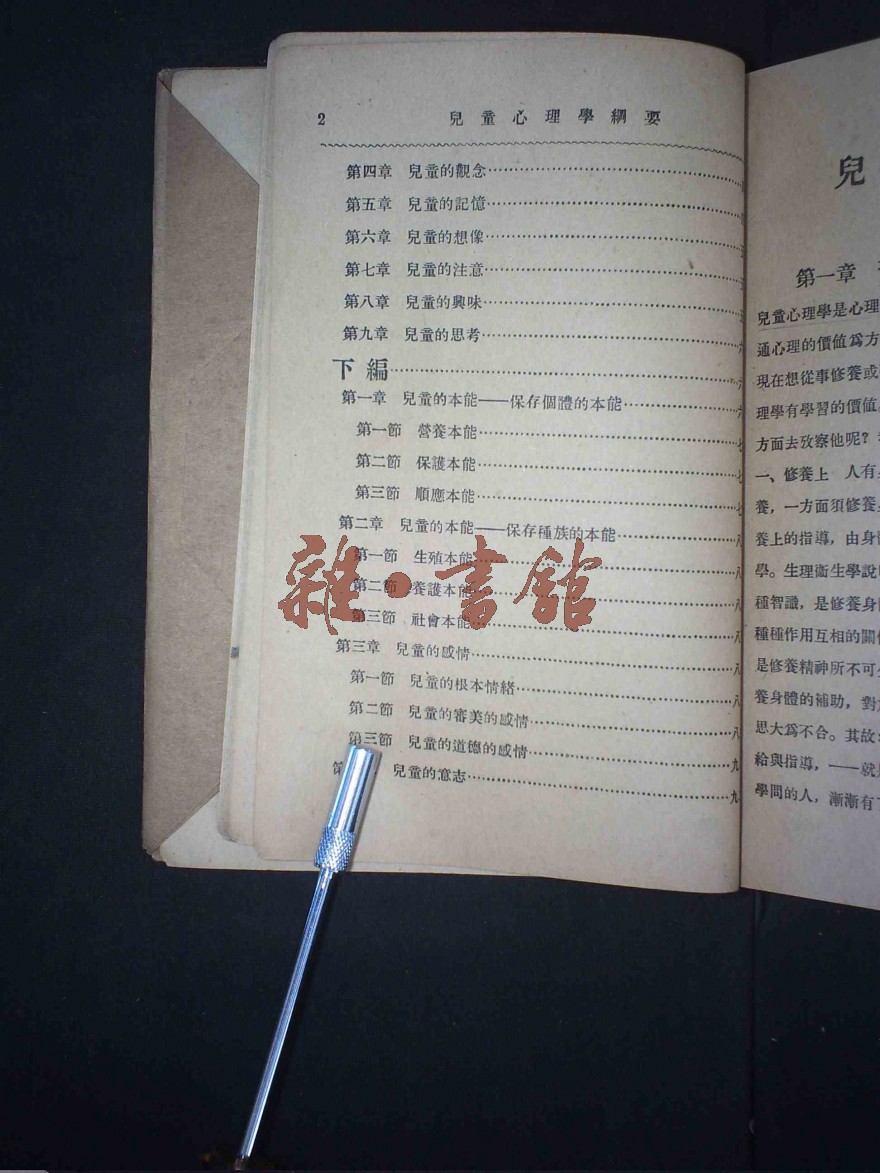 2 兒童心理學綱要
第四章 兒童的觀念
第五章 兒童的記憶
第六章 兒童的想像
第七章 兒童的注意
第八章 兒童的興味
第九章 兒童的思考
下編
第一章 兒童的本能——保存個體的本能
第一節 營養本能
第二節 保護本能
第三節 順應本能
第二章 兒童的本能——保存種族的本能
第一節 生殖本能
第二節 養護本能
第三節 社會本能
第三章 兒童的感情
第一節 兒童的根本情緒
第二節 兒童的審美的感情
第三節 兒童的道德的感情
第 兒童的意志
雜·書館
兒
第一章
兒童心理學是心理
通心理的價値爲方
現在想從事修養或
理學有學習的價値
方面去攷察他呢?
一、修養上 人有
養,一方面須修養
養上的指導,由身
學。生理衞生學說
種智識,是修養身
種種作用互相的關
是修養精神所不可
養身體的補助,對
思大爲不合。其故
給與指導,——就
學問的人,漸漸有